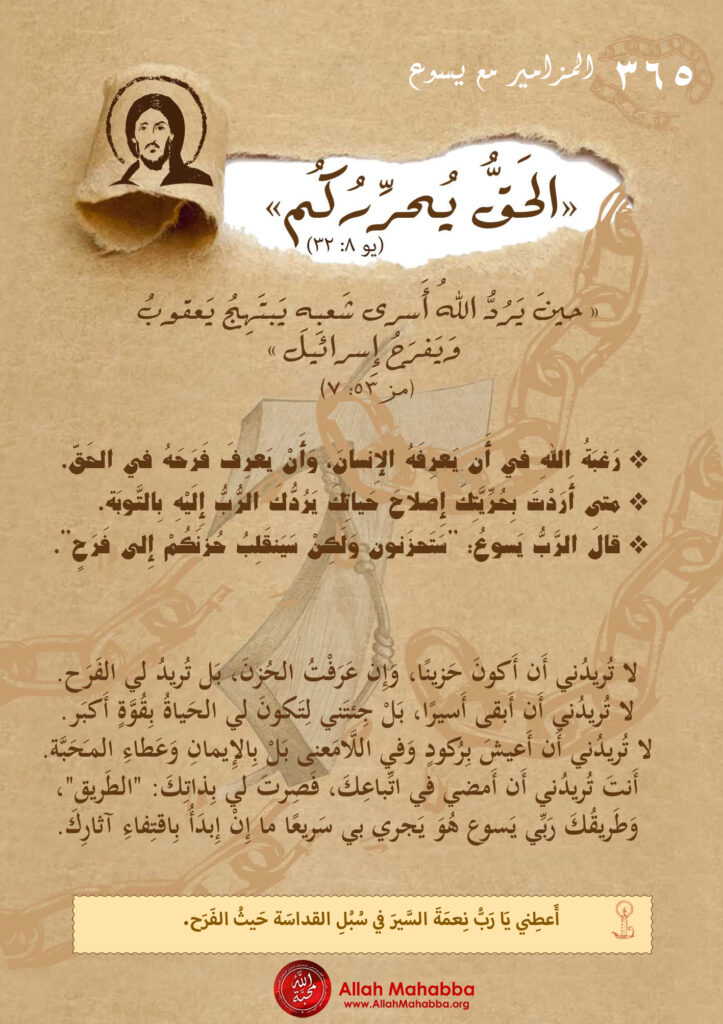 ٣٦٥ المزامير مع يسوع
«الحَقُّ يُحرِّرُكُم»
(يو ٨: ٣٢)
« حينَ يَرُدُّ اللهُ أَسرى شَعبِه يَبتَهِجُ يَعقوبُ
وَيَفرَحُ إِسرائيلَ »
(مز ٥٣: ٧)
❖ رَغبَةُ اللهِ في أَن يَعرِفَهُ الإنسانَ، وأَنْ يَعرِفَ فَرَحَهُ في الحَقّ.
❖ متى أَرَدْتَ بِحُرِّيَّتِكَ إِصلاحَ حَياتَكَ يَرُدُّكَ الرَّبُّ إِلَيْهِ بِالتَّوبَة.
❖ قالَ الرَّبُّ يَسوعُ: "سَتَحزَنون وَلَكِنْ سَيَنقَلِبُ حُزنَكُمْ إِلى فَرَحٍ".
لا تُريدُني أَن أَكونَ حَزينًا، وَإِن عَرَفْتُ الحُزنَ، بَل تُريدُ لي الفَرَح.
لا تُريدُني أَن أَبقى أَسيرًا، بَلْ جِئتَني لِتَكونَ لي الحَياةُ بِقُوَّةٍ أَكبَر.
لا تُريدُني أَن أَعيشَ بِرُكودٍ وَفي اللَّامَعنى بَلْ بِالإِيمانِ وَعَطاءِ المَحَبَّة.
أَنتَ تُريدُني أَن أَمضي في اتِّباعِكَ، فَصِرتَ لي بِذاتِكَ: "الطَريق"،
وَطَريقُكَ رَبِّي يَسوع هُوَ يَجري بي سَريعًا ما إِنْ إِبدَأُ بِاقتِفاءِ آثارِكَ.
أَعطِني يَا رَبُّ نِعمَةَ السَّيرَ في سُبُلِ القداسَة حَيثُ الفَرَح.
الله محبّة
Allah Mahabba
www.AllahMahabba.org